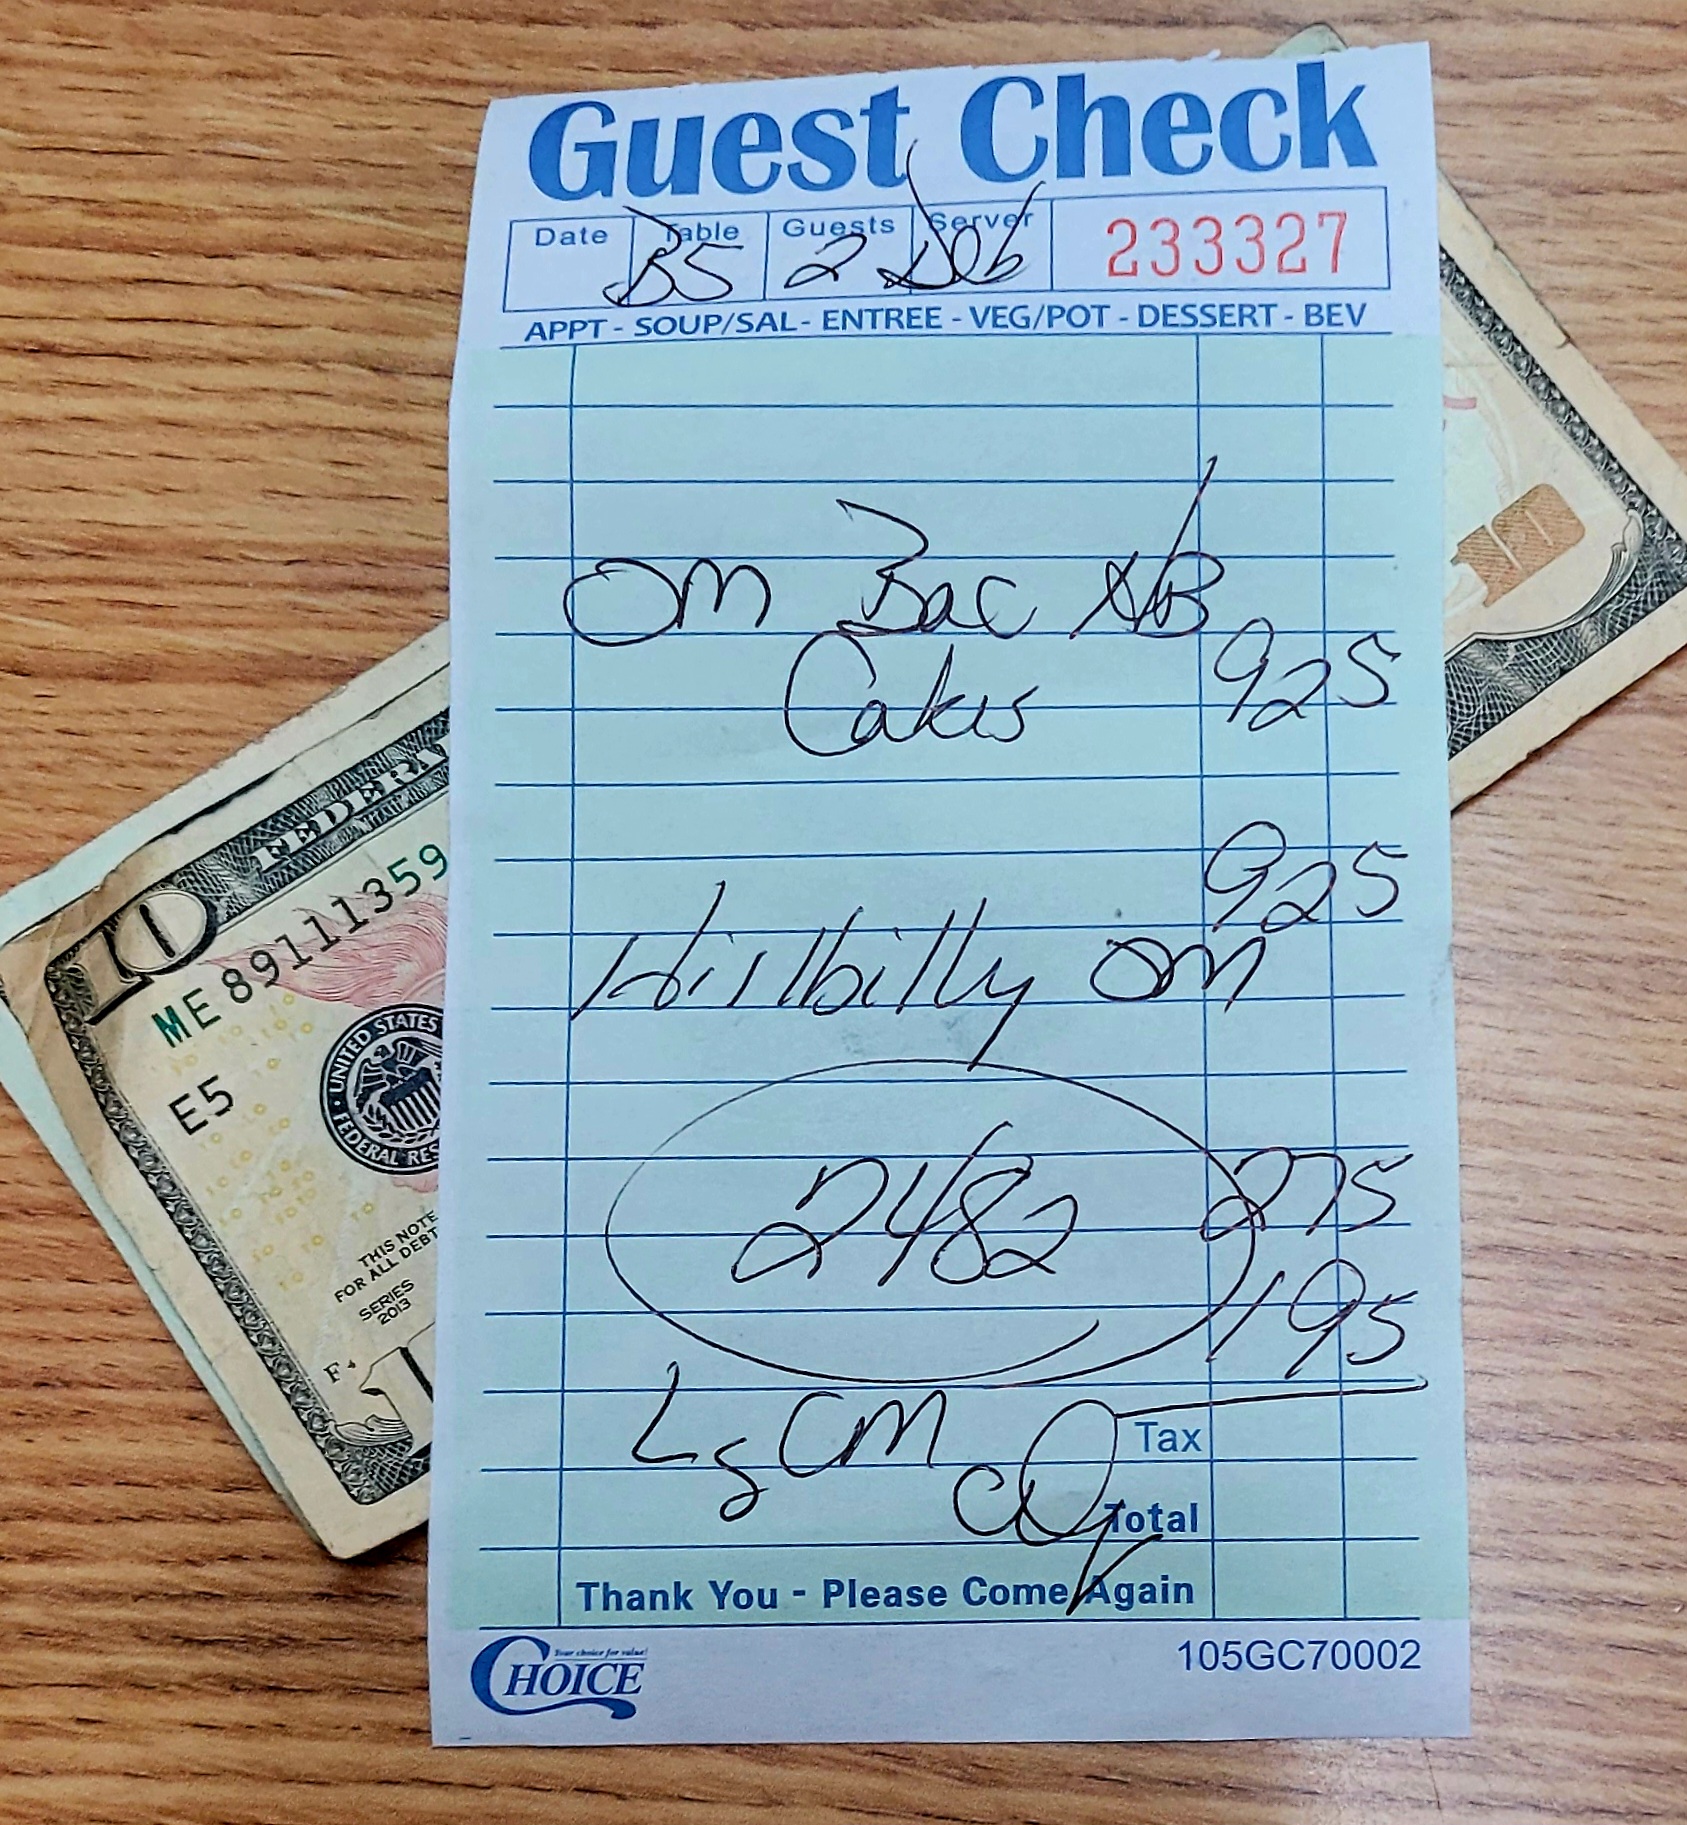 Guest Check
Date Table Guests Server 233327
B5 2 Deb
APPT - SOUP/SAL - ENTREE - VEG/POT - DESSERT - BEV
OM Bac
Cakes 925
925
Hillbilly OM
2482 275
195
Lg CM
Tax
Total
Thank You - Please Come Again
Your choice for value!
CHOICE
105GC70002
10
FEDERA
ME 89111359
E5
UNITED STATES
FEDERAL RES
THIS NOTE
FOR ALL DEBT
SERIES
2013
F
10